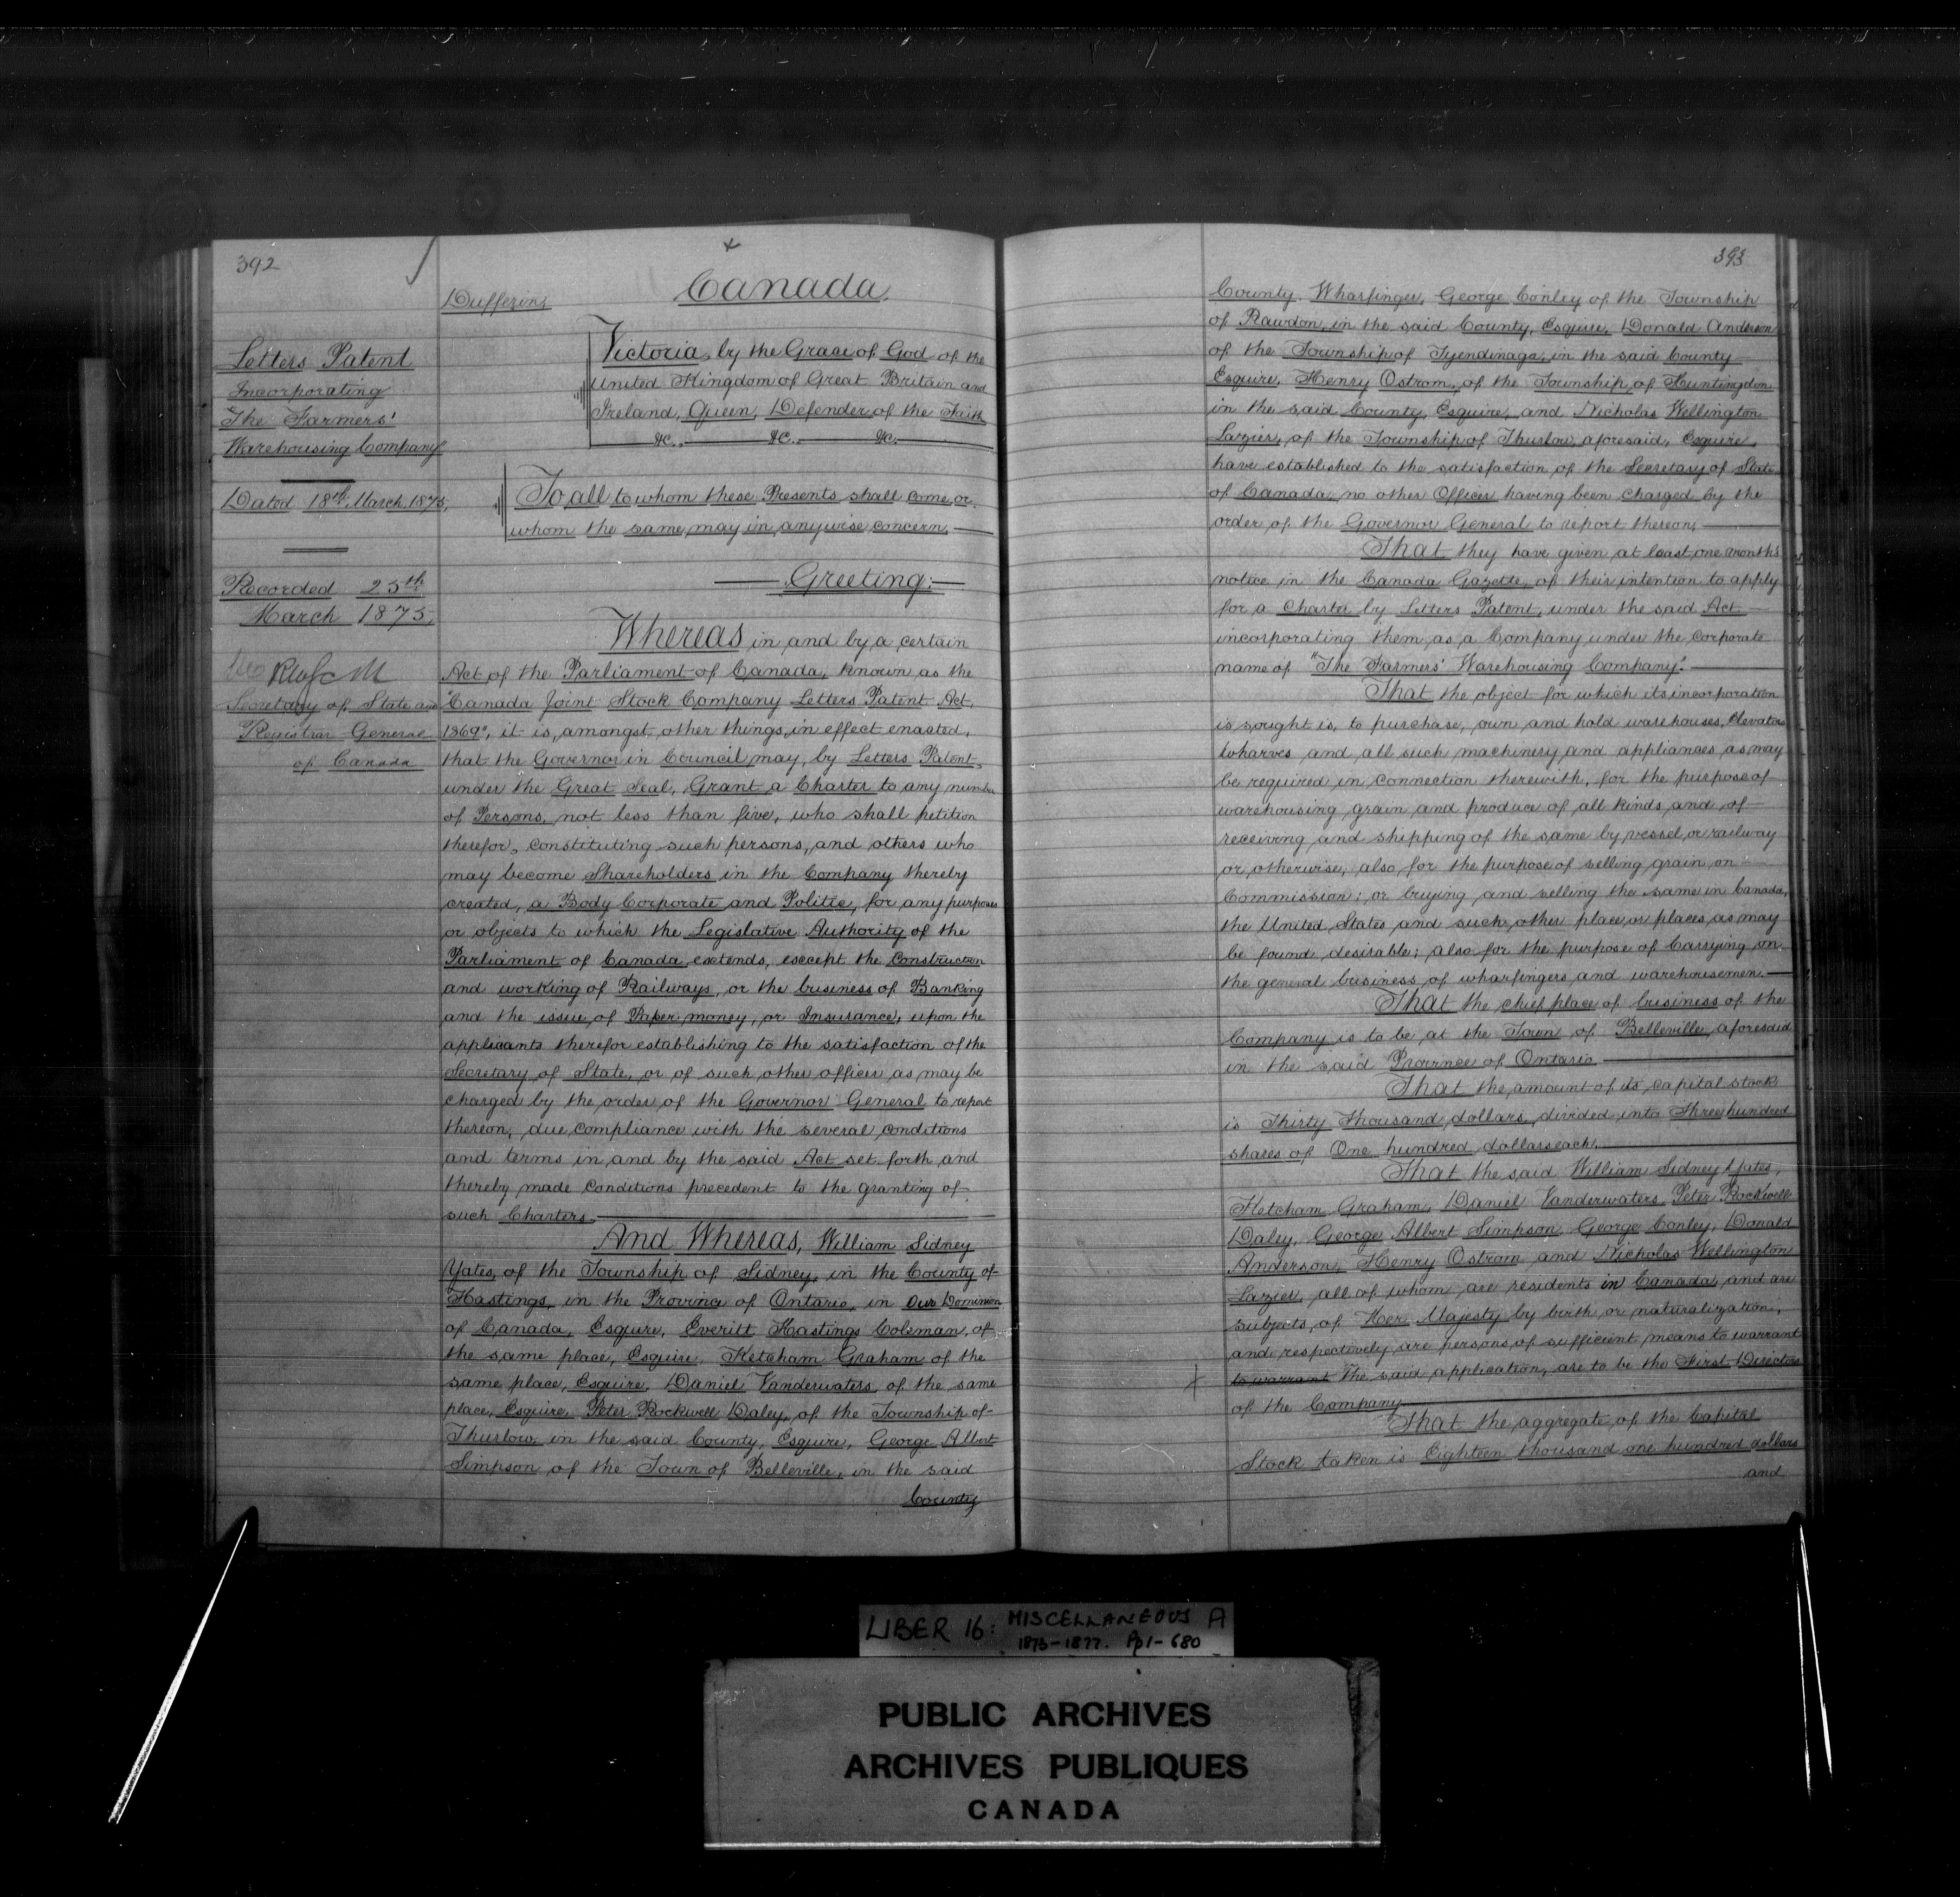 392
Dufferin,
Canada.
Letters Patent
Incorporating
The Farmers'
Warehousing Company
Dated 18th March, 1875,
Recorded 25th
March 1875,
Secretary of State and
Registrar General
of Canada
Victoria, by the Grace of God of the
United Kingdom of Great Britain and
Ireland, Queen, Defender of the Faith
&c. &c. &c.
To all to whom these Presents shall come, or
whom the same may in anywise concern,
Greeting:
Whereas in and by a certain
Act of the Parliament of Canada, known as the
"Canada Joint Stock Company Letters Patent Act,
1869", it is, amongst other things, in effect enacted,
that the Governor in Council may, by Letters Patent,
under the Great Seal, Grant a Charter to any number
of Persons, not less than five, who shall petition
therefor, constituting such persons, and others who
may become Shareholders in the Company thereby
created, a Body Corporate and Politic, for any purposes
or objects to which the Legislative Authority of the
Parliament of Canada extends, except the Construction
and working of Railways, or the business of Banking
and the issue of Paper money, or Insurance, upon the
applicants therefor establishing to the satisfaction of the
Secretary of State, or of such other officer as may be
charged by the order of the Governor General to report
thereon, due compliance with the several conditions
and terms in and by the said Act set forth and
thereby made conditions precedent to the granting of
such Charters.
And Whereas, William Sidney
Yates, of the Township of Sidney, in the County of
Hastings, in the Province of Ontario, in Our Dominion
of Canada, Esquire, Everitt Hastings Coleman, of
the same place, Esquire, Ketcham Graham of the
same place, Esquire, Daniel Vanderwaters, of the same
place, Esquire, Peter Rockwell Daley, of the Township of
Thurlow, in the said County, Esquire, George Albert
Simpson of the Town of Belleville, in the said
County
393
County. Wharfinger, George Conley of the Township
of Rawdon, in the said County, Esquire, Donald Anderson
of the Township of Tyendinaga, in the said County
Esquire, Henry Ostrom, of the Township of Huntingdon
in the said County, Esquire, and Nicholas Wellington
Lazier, of the Township of Thurlow, aforesaid, Esquire,
have established to the satisfaction of the Secretary of State
of Canada, no other Officer having been charged by the
order of the Governor General to report thereon,
That they have given at least one month's
notice in the Canada Gazette, of their intention to apply
for a Charter by Letters Patent, under the said Act
incorporating them as a Company under the corporate
name of "The Farmers' Warehousing Company".
That the object for which its incorporation
is sought is, to purchase, own and hold warehouses, elevators
wharves and all such machinery and appliances as may
be required in connection therewith, for the purpose of
warehousing grain and produce of all kinds and of
receiving and shipping of the same by vessel or railway
or otherwise; also for the purpose of selling grain on
Commission; or buying and selling the same in Canada,
the United States and such other place or places as may
be found desirable; also for the purpose of Carrying on
the general business of wharfingers and warehousemen.
That the chief place of business of the
Company is to be at the Town of Belleville, aforesaid
in the said Province of Ontario.
That the amount of its capital stock
is Thirty Thousand dollars, divided into Three hundred
shares of One hundred dollars each,
That the said William Sidney Yates,
Ketcham Graham, Daniel Vanderwaters, Peter Rockwell
Daley, George Albert Simpson, George Conley, Donald
Anderson, Henry Ostrom and Nicholas Wellington
Lazier, all of whom are residents in Canada, and are
subjects of Her Majesty by birth or naturalization,
and respectively are persons of sufficient means to warrant
to warrant the said application, are to be the First Directors
of the Company
That the aggregate of the Capital
Stock taken is Eighteen thousand one hundred dollars
and
LIBER 16: MISCELLANEOUS A
1873-1877. Pp 1-680
PUBLIC ARCHIVES
ARCHIVES PUBLIQUES
CANADA